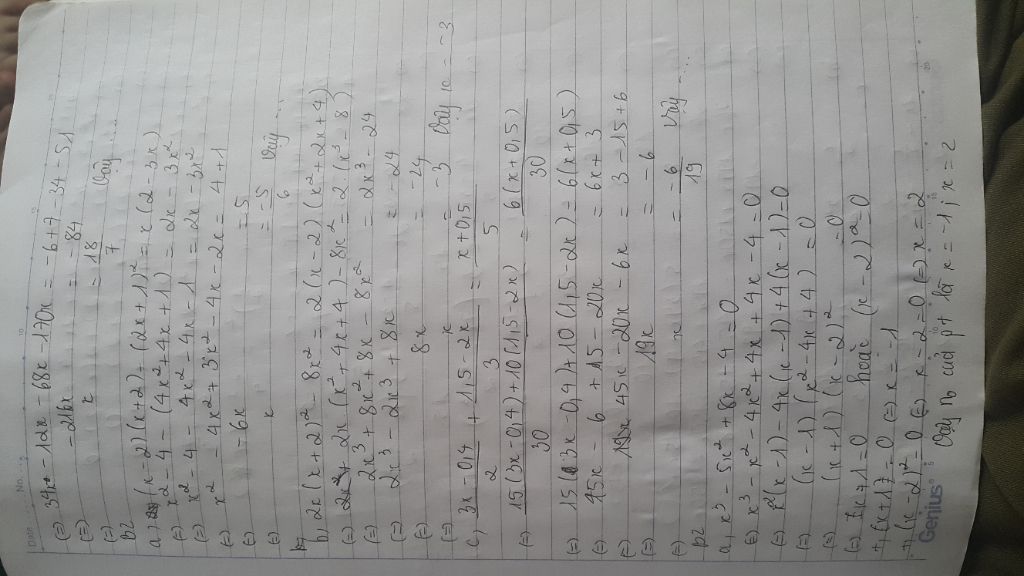 No.
(=) 34x - 12x - 68x - 170x = - 6 + 7 - 34 - 51
(=) - 216x = - 84
(=) x = 18
7 Vậy ...
B2
a, (x - 2)(x + 2) - (2x + 1)² = x(2 - 3x)
(=) x² - 4 - (4x² + 4x + 1) = 2x - 3x²
(=) x² - 4 - 4x² - 4x - 1 = 2x - 3x²
(=) x² - 4x² + 3x² - 4x - 2x = 4 + 1
(=) - 6x = 5
(=) x = - 5 Vậy ...
6
b, 2x(x + 2)² - 8x² = 2(x - 2)(x² + 2x + 4)
(=) 2x(x² + 4x + 4) - 8x² = 2(x³ - 8)
(=) 2x³ + 8x² + 8x - 8x² = 2x³ - 24
(=) 2x³ - 2x³ + 8x = - 24
(=) 8x = - 24
(=) x = - 3 Vậy x = - 3
c, 3x - 0,4 + 1,5 - 2x = x + 0,5
2 3 5
(=) 15(3x - 0,4) + 10(1,5 - 2x) = 6(x + 0,5)
30 30
(=) 15(3x - 0,4) + 10(1,5 - 2x) = 6(x + 0,5)
(=) 45x - 6 + 15 - 20x = 6x + 3
(=) 45x - 20x - 6x = 3 - 15 + 6
(=) 19x = - 6
(=) x = - 6 Vậy ...
19
B2
a, x³ - 5x² + 8x - 4 = 0
(=) x³ - x² - 4x² + 4x + 4x - 4 = 0
(=) x²(x - 1) - 4x(x - 1) + 4(x - 1) = 0
(=) (x - 1)(x² - 4x + 4) = 0
(=) (x + 1)(x - 2)² = 0
(=) x + 1 = 0 hoặc (x - 2)² = 0
+, x + 1 = 0 (=) x = - 1
+, (x - 2)² = 0 (=) x - 2 = 0 (=) x = 2
Vậy no của pt là x = - 1 ; x = 2
Genius